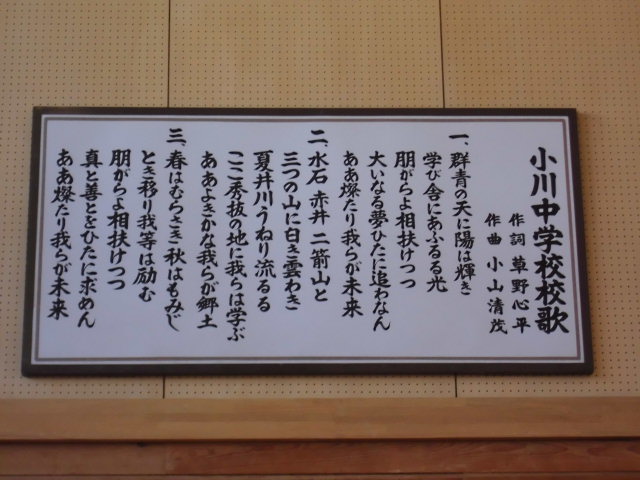 小川中学校校歌
作詞 草野心平
作曲 小山清茂
一、群青の天に陽は輝き
学び舎にあふるる光
朋がらよ相扶けつつ
大いなる夢ひたに追わなん
ああ燦たり我らが未来
二、水石 赤井 二箭山と
三つの山に白き雲わき
夏井川うねり流るる
ここ秀抜の地に我らは学ぶ
ああよきかな我らが郷土
三、春はむらさき秋はもみじ
とき移り我等は励む
朋がらよ相扶けつつ
真と善とをひたに求めん
ああ燦たり我らが未来